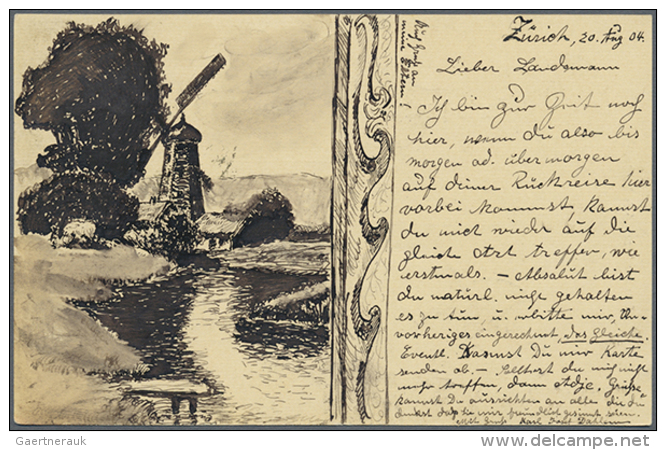 Zürich, 20. Aug 04.
Lieber Landsmann
Ich bin zur Zeit noch
hier, wenn du also bis
morgen od. übermorgen
auf deiner Rückreise hier
vorbei kommst, kannst
du mich wieder auf die
gleiche Art treffen, wie
erstmals. – Absolut bist
du natürl. nicht gehalten
es zu tun, u. erbitte mir,
vorheriges eingerechnet, das gleiche.
Eventl. kannst Du mir Karte
senden ob. – Solltest du mich nicht
mehr treffen, dann Adje, Grüsse
kannst Du ausrichten an alle die du
denkst dass sie mir freundlich gesinnt seien.
Mit Gruss Karl
Gruss an
meine Eltern!
Gaertnerauk
delcampe.net